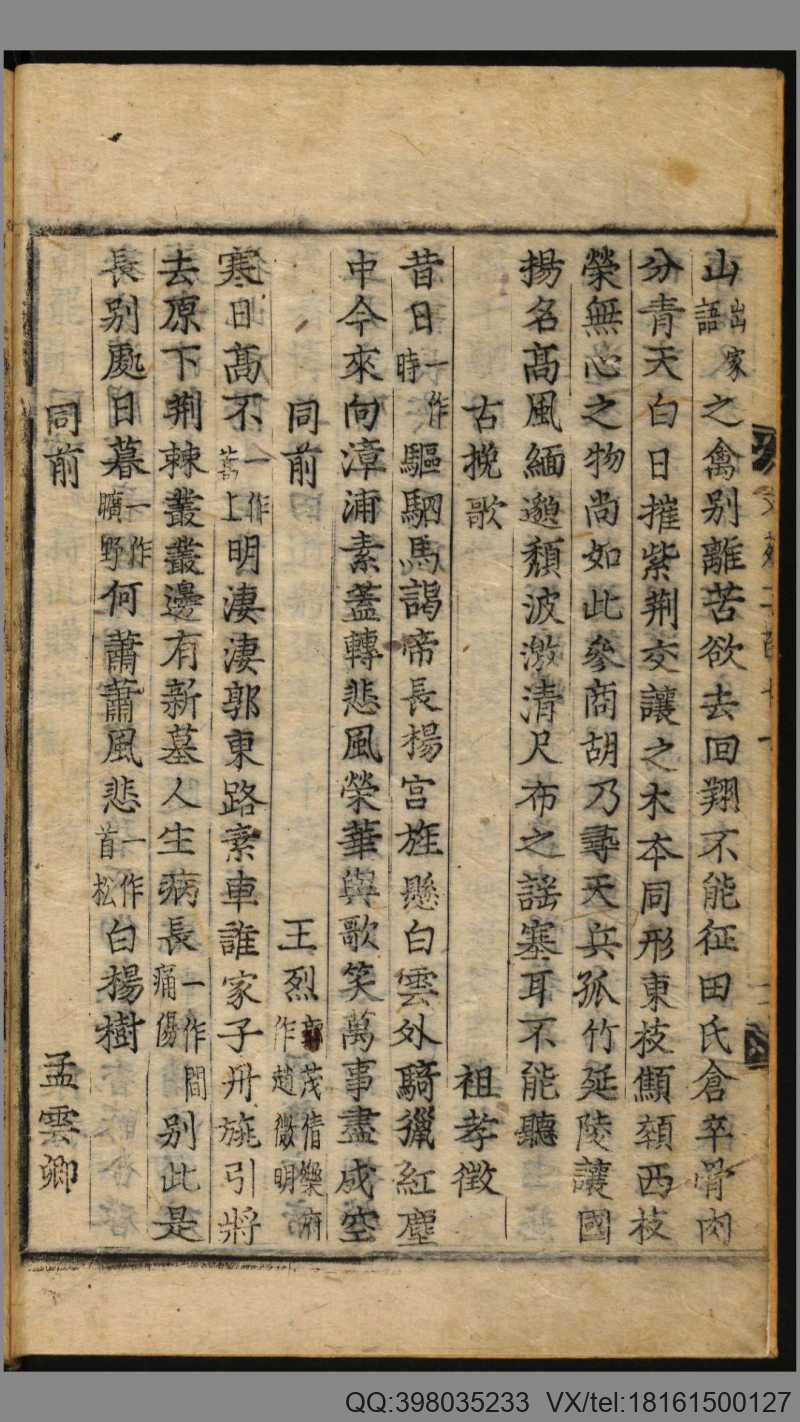 山出家語之禽別離苦欲去回翔不能征田氏倉卒骨肉
分青天白日摧紫荆交讓之木本同形東枝顦顇西枝
榮無心之物尚如此參商胡乃尋天兵孤竹延陵讓國
揚名髙風緬邈頹波激清尺布之謡塞耳不能聽
古挽歌 祖孝徵
昔日一作時驅駟馬謁帝長楊宫旌懸白雲外騎獵紅塵
中今來向漳浦素蓋轉悲風榮華與歌笑萬事盡成空
同前 王烈郭茂倩樂府作趙微明
寒日髙不一作蒿上明淒淒郭東路素車誰家子丹旐引將
去原下荆棘叢叢邊有新墓人生病長一作間痛傷別此是
長別處日暮一作曠野何蕭蕭風悲一作首松白楊樹
同前 孟雲卿
QQ:398035233 VX/tel:18161500127